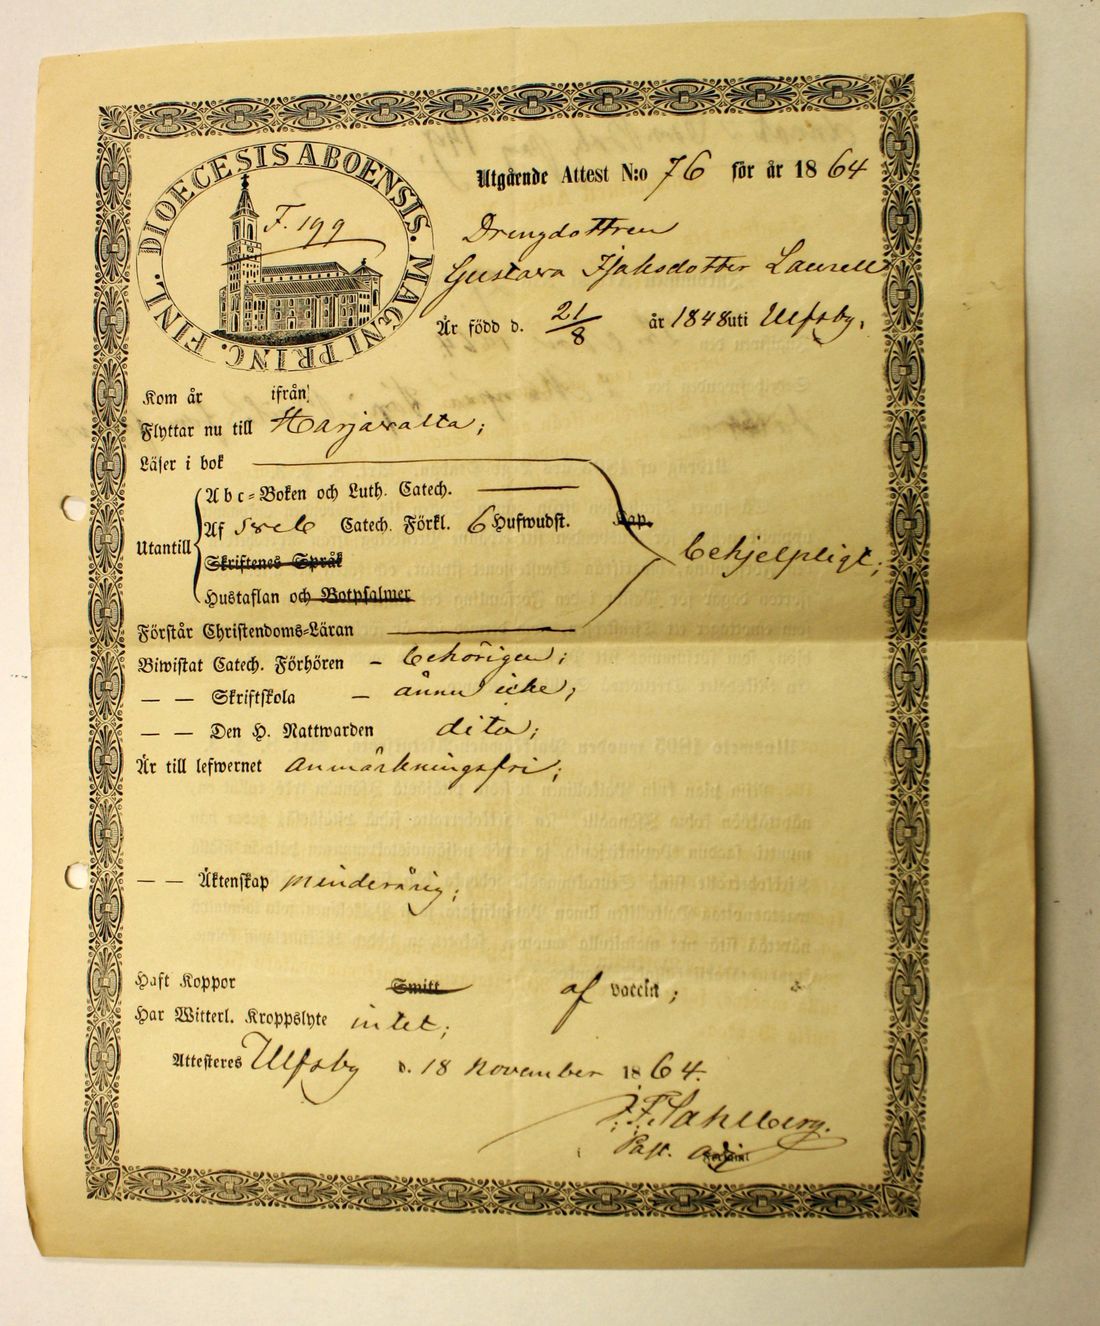 DIOECESIS ABOENSIS. MAGNI PRINC. FINL.
F. 199
Utgående Attest N:o 76 för år 1864
Drengdottren
Gustava Isaksdotter Laurell
Är född d. 21/8 år 1848 uti Ulfsby,
Kom år ifrån
Flyttar nu till Harjavalta;
Läser i bok
Abc=Boken och Luth. Catech.
Af Catech. Förkl. 6 Hufwudst. Kap.
Utantill
behjelpligt;
Skriftenes Språk
Hustaflan och Botpsalmer
Förstår Christendoms=Läran
Biwistat Catech. Förhören – behörigen;
— — Skriftskola – ännu icke;
— — Den H. Nattwarden dito;
Är till lefwernet anmärkningsfri;
— — Äktenskap minderårig;
Haft Koppor Smitt af vaccin;
Har Witterl. Kroppslyte intet;
Attesteres Ulfsby d. 18 November 1864.
F. Sahlberg.
Past. adj.